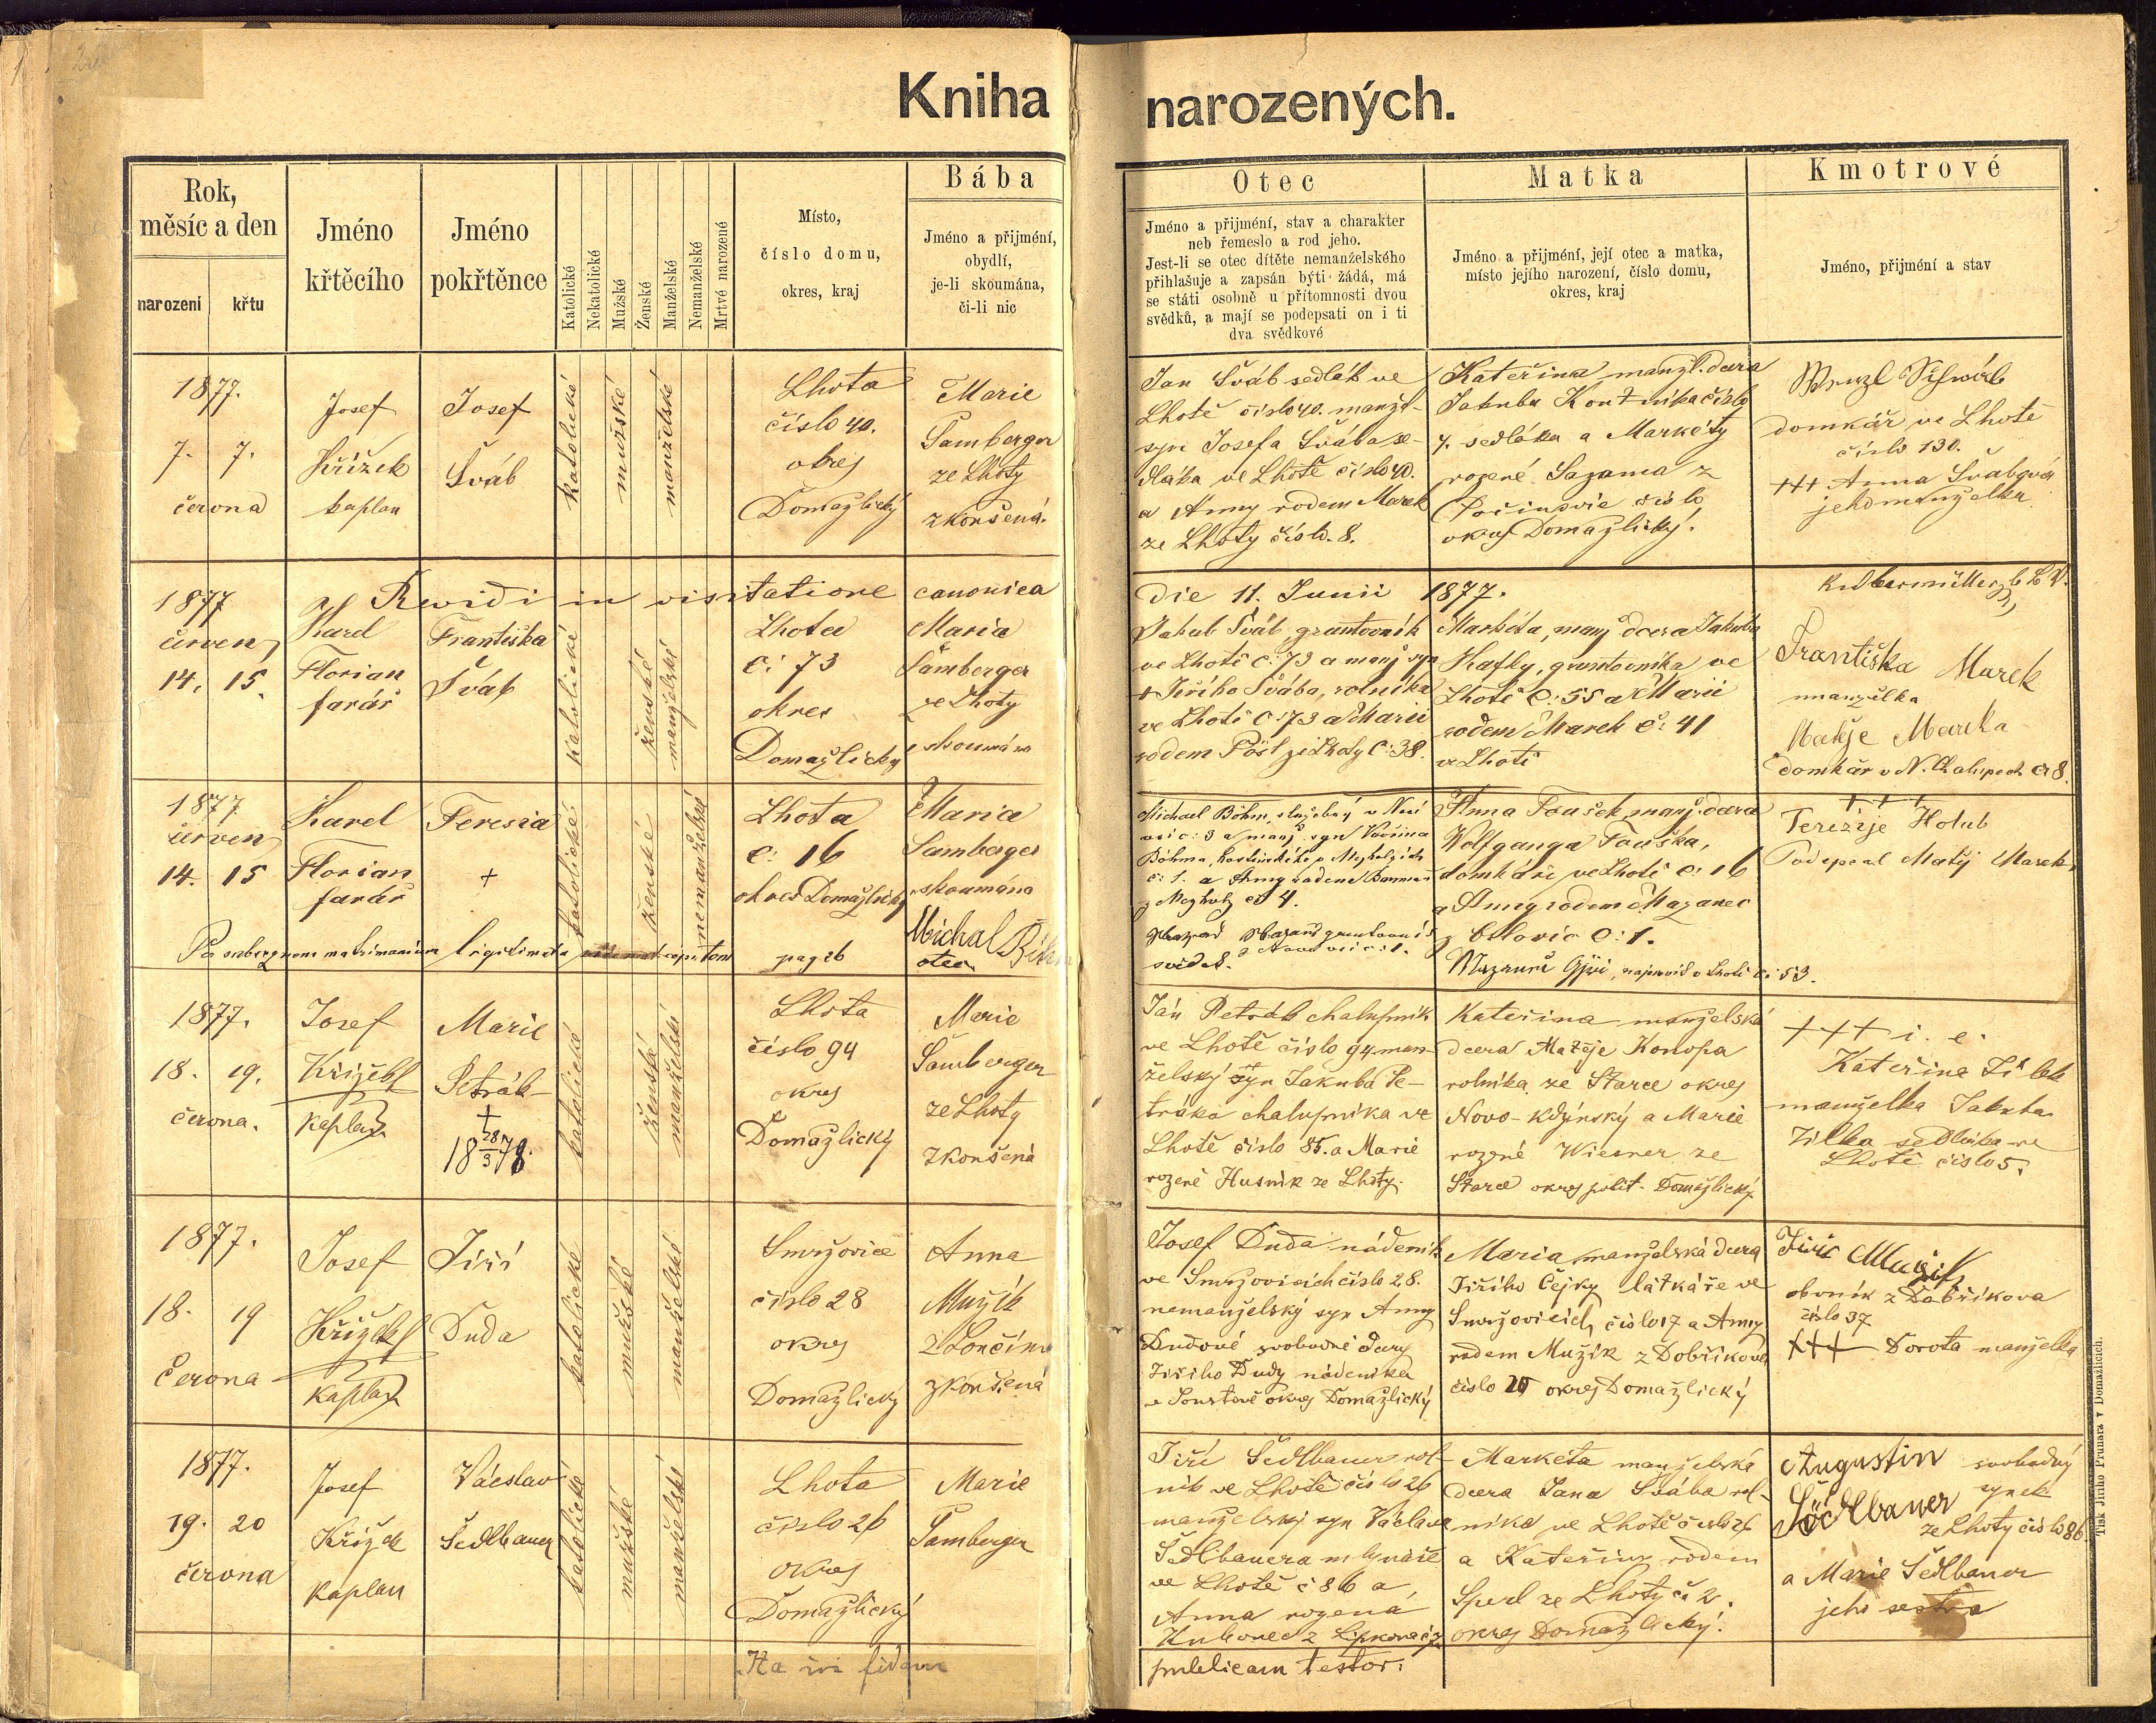 Kniha narozených.
Rok, měsíc a den
narození
křtu
Jméno křtěcího
Jméno pokřtěnce
Katolické
Nekatolické
Mužské
Ženské
Manželské
Nemanželské
Mrtvé narozené
Místo,
číslo domu,
okres, kraj
Bába
Jméno a přijmení,
obydlí,
je-li skoumána,
či-li nic
Otec
Jméno a přijmení, stav a charakter
neb řemeslo a rod jeho.
Jest-li se otec dítěte nemanželského
přihlašuje a zapsán býti žádá, má
se státi osobně u přítomnosti dvou
svědků, a mají se podepsati on i ti
dva svědkové
Matka
Jméno a přijmení, její otec a matka,
místo jejího narození, číslo domu,
okres, kraj
Kmotrové
Jméno, přijmení a stav
1877.
7. 7.
června
Josef
Křížek
kaplan
Josef
Šváb
katolické
mužské
manželské
Lhota
číslo 40.
okres
Domažlický
Marie
Samberger
ze Lhoty
zkoušená.
Jan Šváb sedlák ve
Lhotě číslo 40. manžel-
syn Josefa Švába se-
dláka ve Lhotě číslo 40.
a Anny rodem Marek
ze Lhoty číslo. 8.
Kateřina manžl. dcera
Jakuba číslo
7. sedláka a Markéty
rozené Sazama z
číslo
okres Domažlický.
Wenzl Schwáb
domkář ve Lhotě
číslo 130.
+++ Anna Švabová
jeho manželka
Revidi in visitatione canonica
die 11. Junii 1877.
1877
červen
14. 15.
Karel
Florian
farář
Františka
Šváb
katolické
ženské
manželské
Lhota
č: 73
okres
Domažlický
Maria
Samberger
ze Lhoty
skoumána
Jakub Šváb, gruntovník
ve Lhotě č: 73 a manž syn
+ Jiřího Švába, rolníka
ve Lhotě č: 73 a Marii
rodem Pöstl ze Lhoty č: 38.
Markéta, manž dcera Jakuba
Hafky, gruntovníka ve
Lhotě č: 55 a Marii
rodem Marek č: 41
ve Lhotě
Františka Marek
manželka
Matěje Marka
domkář v N. Chalupách č. 8.
1877
červen
14. 15
Karel
Florian
farář
Teresia
+
katolické
ženské
nemanželské
Lhota
č: 16
okres Domažlický
Maria
Samberger
skoumána
Per subsequens matrimonium legitimata
pag 26
Michal Böhm
otec
Michael Böhm, služebný v Nové
vsi č: 3 a manž. syn Vavřina
Böhma,
č: 1. a Anny rodem
č 4.
svědek.
Anna Toušek manž. dcera
Wolfganga Touška,
domkáře ve Lhotě č: 16
a Anny rodem Mazanec
z č: 1.
v Lhotě č: 53.
+ + +
Terezije Holub
Podepsal Matěj Marek
1877.
18. 19.
června.
Josef
Křížek
kaplan
Marie
Petrák
+
18 28/3 78.
katolické
ženské
manželské
Lhota
číslo 94
okres
Domažlický
Marie
Samberger
ze Lhoty
zkoušená
Ján Petrák chalupník
ve Lhotě číslo 94 man-
želský syn Jakuba Pe-
tráka chalupníka ve
Lhotě číslo 85. a Marie
rozené Husník ze Lhoty.
Kateřina manželská
dcera Matěje Konopa
rolníka ze Starce okres
Novo-Kdýnský a Marie
rozené Wiesner ze
Starce okres polit. Domažlický
+++ i. e.
Kateřina Žílek
manželka Jakuba
Žílka sedláka ve
Lhotě číslo 5.
1877.
18. 19
Června
Josef
Křížek
kaplan
Jiří
Duda
katolické
mužské
manželské
Smržovice
číslo 28
okres
Domažlický
Anna
Mužík
z Lončima
zkoušená
Josef Duda nádeník
ve Smržovicích číslo 28.
nemanželský syn Anny
Dudové svobodné dcery
Jiřího Dudy nádeníka
v okres Domažlický
Maria manželská dcera
Jiřího Čejky látkáře ve
Smržovicích číslo 17 a Anny
rodem Mužík z Dobříkova
číslo okres Domažlický
Jiří Mužík
z Dobříkova
číslo 37
+++ Dorota manželka
1877.
19. 20
června
Josef
Křížek
kaplan
Václav
Sedlbauer
katolické
mužské
manželské
Lhota
číslo 26
okres
Domažlický
Marie
Samberger
Jiří Sedlbauer rol-
ník ve Lhotě číslo 26
manželský syn Václava
Sedlbauera mlynáře
ve Lhotě č 86 a
Anna rozená
Markéta manželská
dcera Jana Švába rol-
níka ve Lhotě číslo 26
a Kateřiny rodem
Sperl ze Lhoty č. 2.
okres Domažlický.
Augustin svobodný
synek
Södlbauer
ze Lhoty číslo 86
a Marie Sedlbauer
jeho sestra
Ita in fidem
publicam testor.
Tisk Jiřího Prunara v Domažlicích.